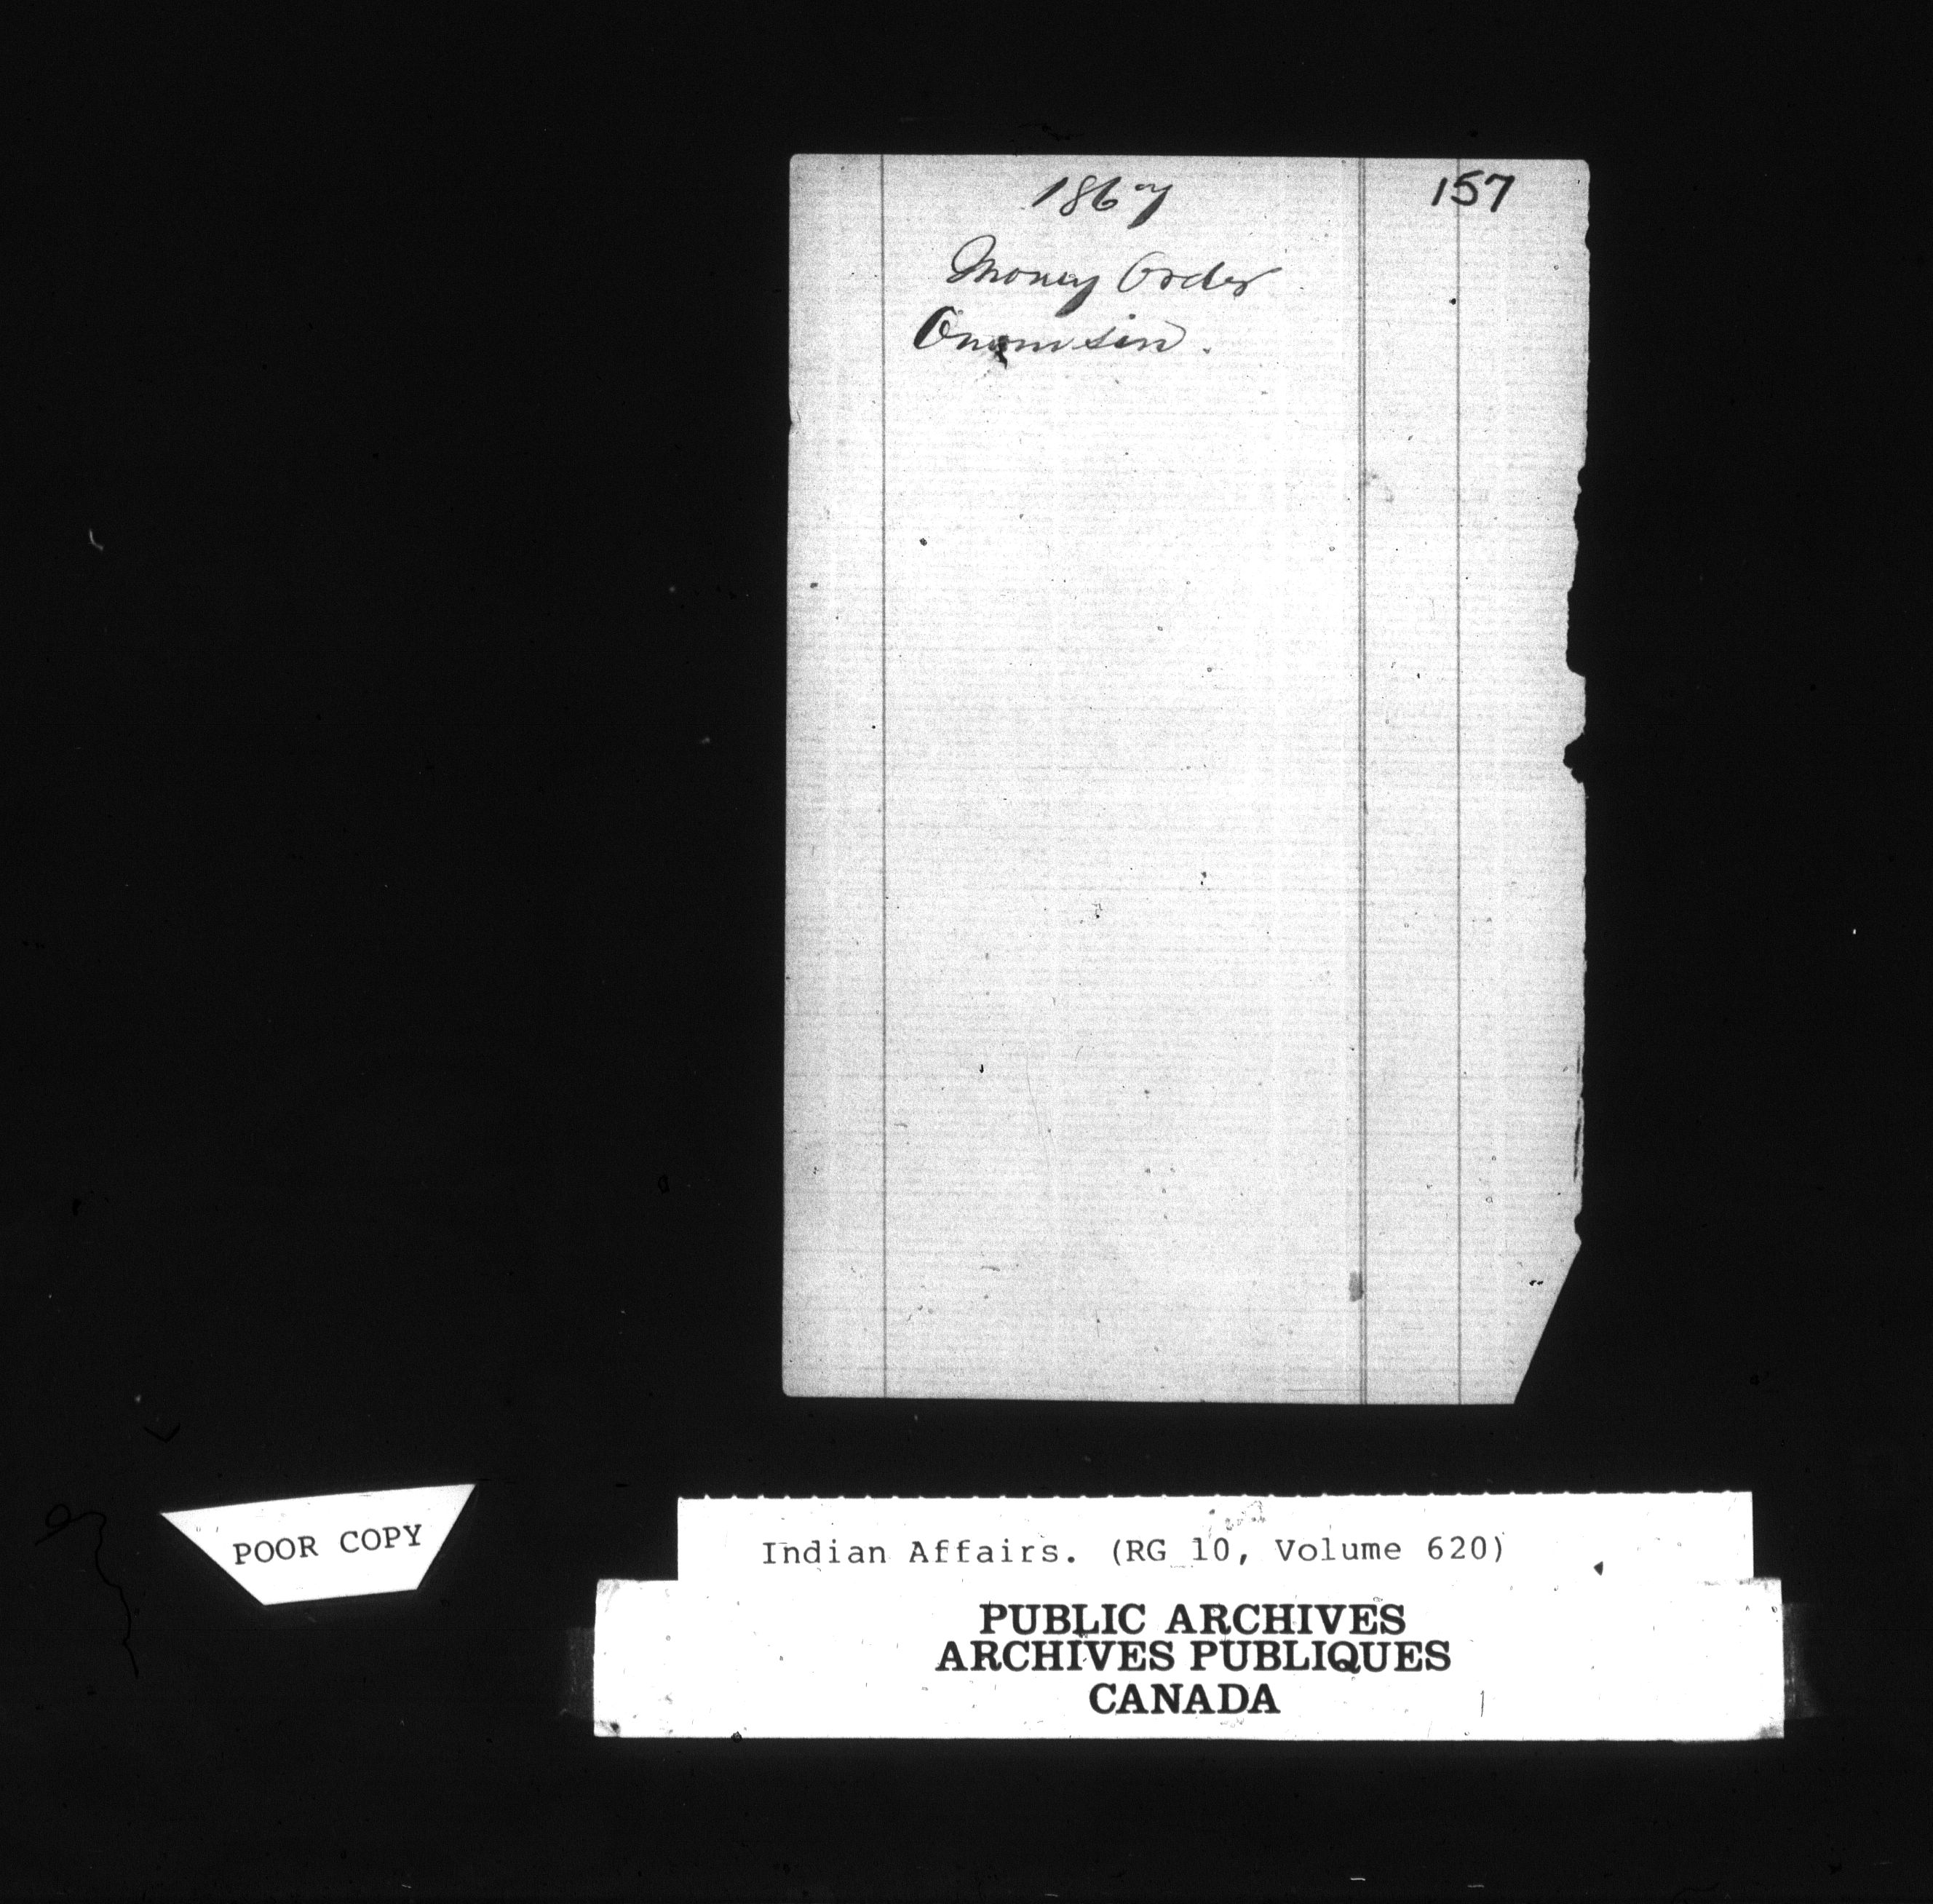 157
1867
Money Order
POOR COPY
Indian Affairs. (RG 10, Volume 620)
PUBLIC ARCHIVES
ARCHIVES PUBLIQUES
CANADA